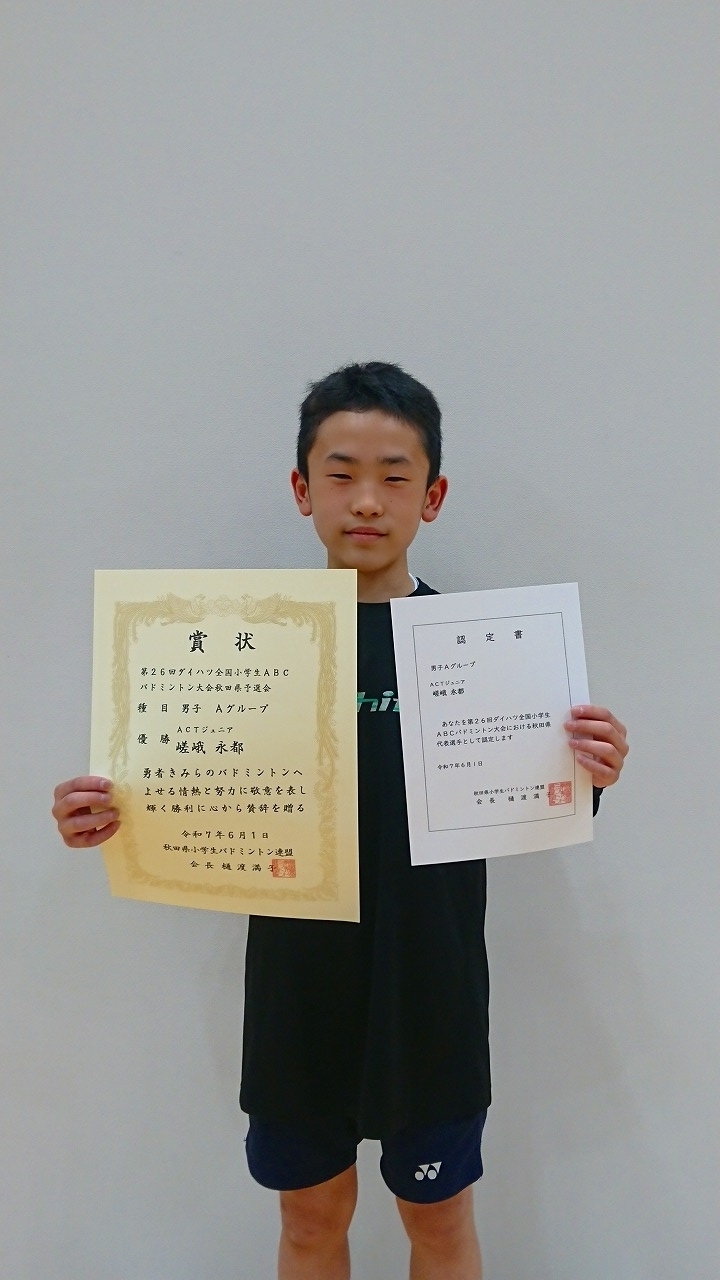 賞状
第26回ダイハツ全国小学生ABC
バドミントン大会秋田県予選会
種目 男子 Aグループ
ACTジュニア
優勝 嵯峨 永都
勇者きみらのバドミントンへ
よせる情熱と努力に敬意を表し
輝く勝利に心から賛辞を贈る
令和7年6月1日
秋田県小学生バドミントン連盟
会長 樋渡満子
認定書
男子Aグループ
ACTジュニア
嵯峨 永都
あなたを第26回ダイハツ全国小学生
ABCバドミントン大会における秋田県
代表選手として認定します
令和7年6月1日
秋田県小学生バドミントン連盟
会長 樋渡満子
hi